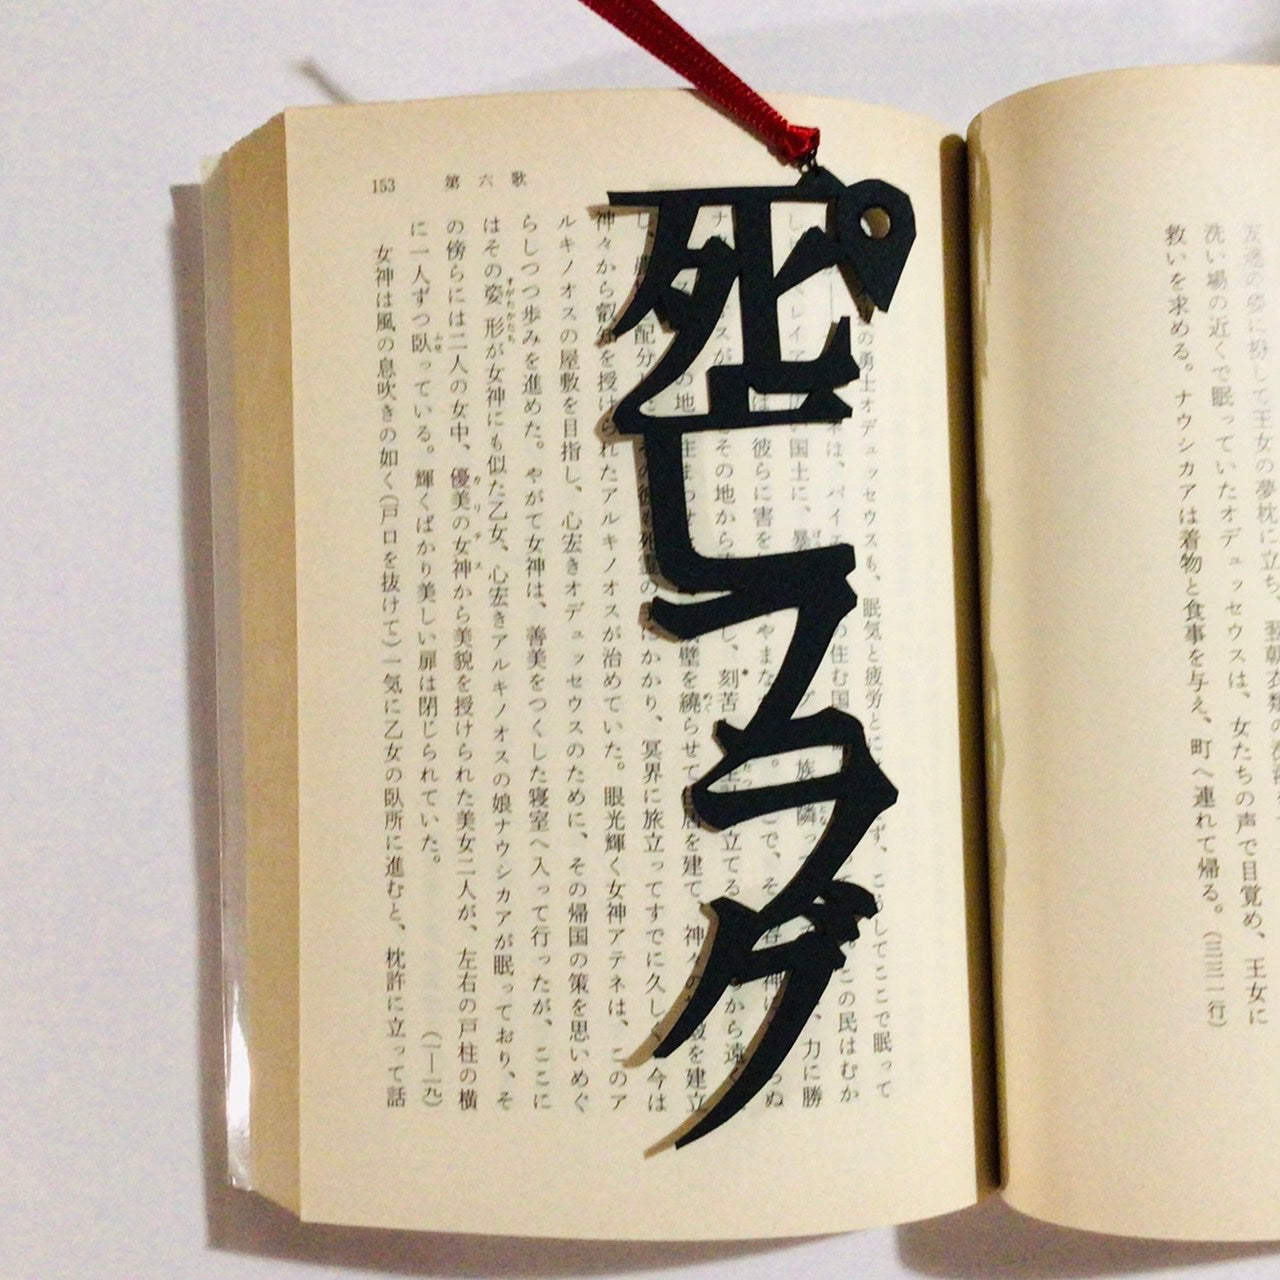 死亡フラグ
友達の姿に扮して王女の夢枕に立ち、翌朝衣類の
洗い場の近くで眠っていたオデュッセウスは、女たちの声で目覚め、王女に
救いを求める。ナウシカアは着物と食事を与え、町へ連れて帰る。(三三一行)
153 第六歌
の勇士オデュッセウスも、眠気と疲労とに ず、こうしてここで眠って
は、パイエ の住む国 。この民はむか
い国土に、 族 隣 、力に勝
は彼らに害を やまな で、そ らぬ
その地から し、刻苦 立てる から遠く
の地 住まわせ 城壁を繞らせて住居を建て、神々の を建立
し、 配分した その彼も死霊の手にかかり、冥界に旅立ってすでに久しく、今は
神々から叡知を授けられたアルキノオスが治めていた。眼光輝く女神アテネは、このア
ルキノオスの屋敷を目指し、心宏きオデュッセウスのために、その帰国の策を思いめぐ
らしつつ歩みを進めた。やがて女神は、善美をつくした寝室へ入って行ったが、ここに
はその姿形が女神にも似た乙女、心宏きアルキノオスの娘ナウシカアが眠っており、そ
の傍らには二人の女中、優美の女神から美貌を授けられた美女二人が、左右の戸柱の横
に一人ずつ臥っている。輝くばかり美しい扉は閉じられていた。 (一—一九)
女神は風の息吹きの如く(戸口を抜けて)一気に乙女の臥所に進むと、枕許に立って話